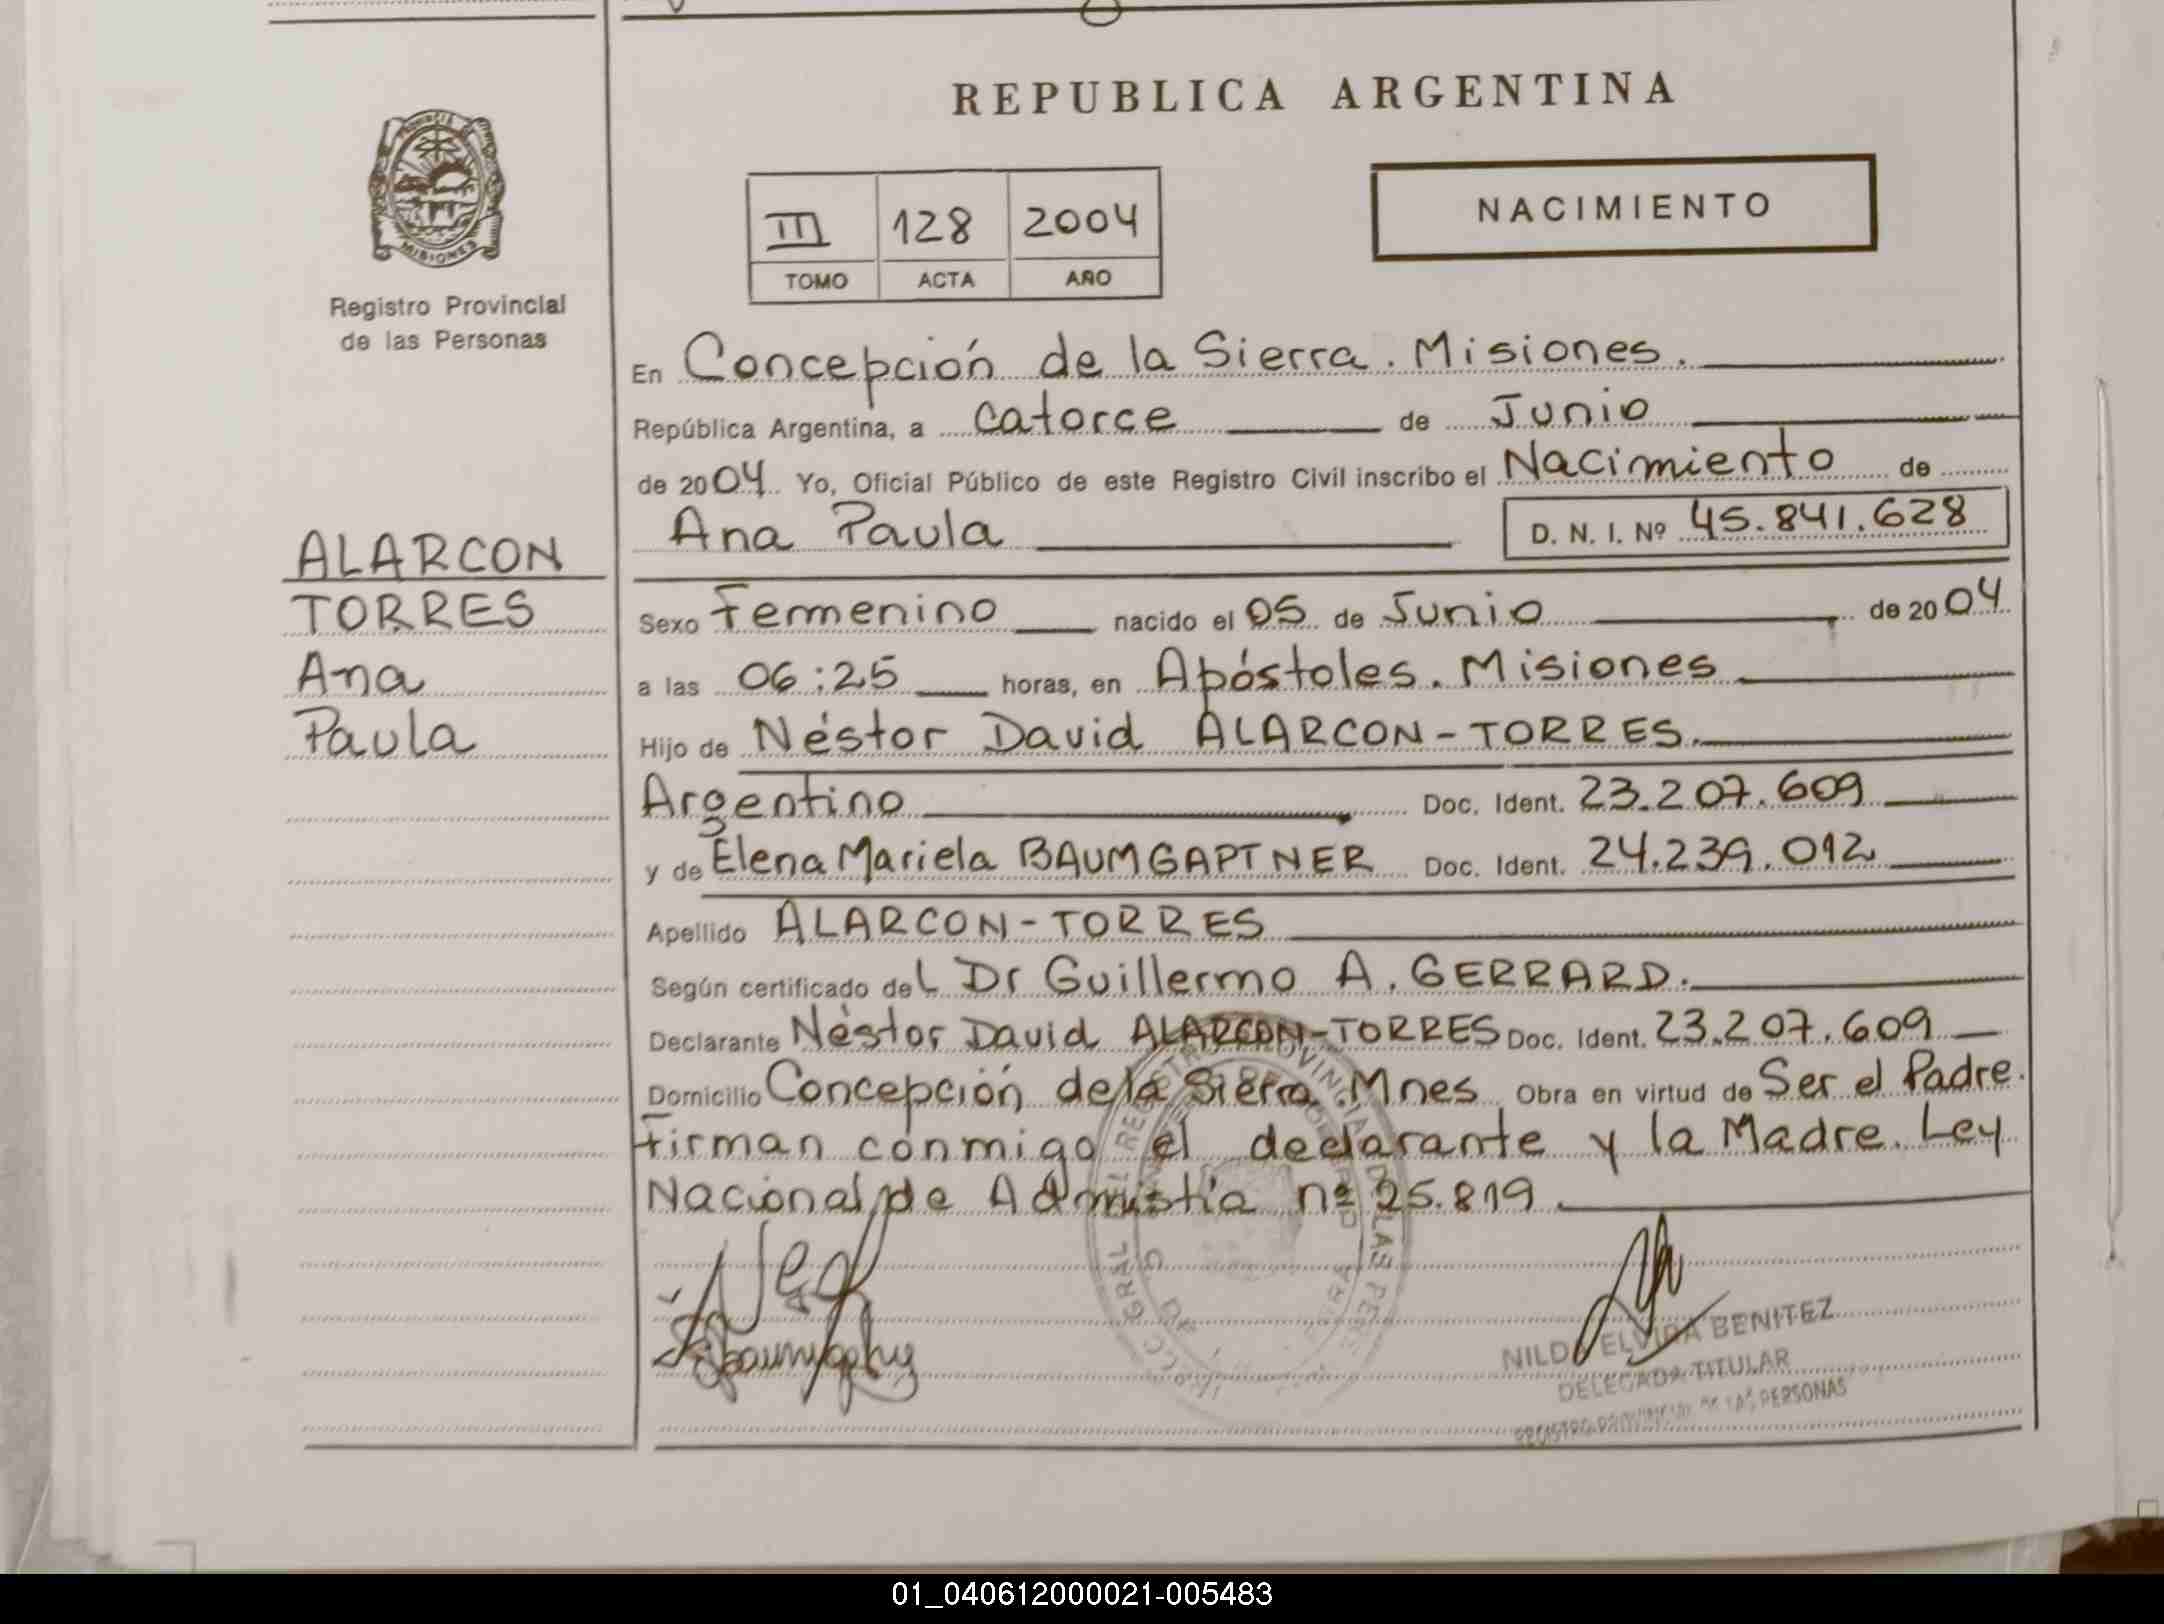 REPUBLICA ARGENTINA
PROVINCIA DE
MISIONES
Registro Provincial
de las Personas
III 128 2004
TOMO ACTA AÑO
NACIMIENTO
En Concepción de la Sierra. Misiones.
República Argentina, a catorce de Junio
de 2004 Yo, Oficial Público de este Registro Civil inscribo el Nacimiento de
Ana Paula D. N. I. Nº 45.841.628
ALARCON
TORRES
Ana
Paula
Sexo Femenino nacido el 05 de Junio de 2004
a las 06:25 horas, en Apóstoles. Misiones
Hijo de Néstor David ALARCON-TORRES.
Argentino Doc. Ident. 23.207.609
y de Elena Mariela BAUMGAPTNER Doc. Ident. 24.239.012
Apellido ALARCON-TORRES
Según certificado del Dr Guillermo A. GERRARD.
Declarante Néstor David ALARCON-TORRES Doc. Ident. 23.207.609
Domicilio Concepción de la Sierra. Mnes Obra en virtud de Ser el Padre.
Firman conmigo el declarante y la Madre. Ley
Nacional de Admistía nº 25.819
NILDA ELVIRA BENITEZ
DELEGADA TITULAR
REGISTRO PROVINCIAL DE LAS PERSONAS
01_040612000021-005483